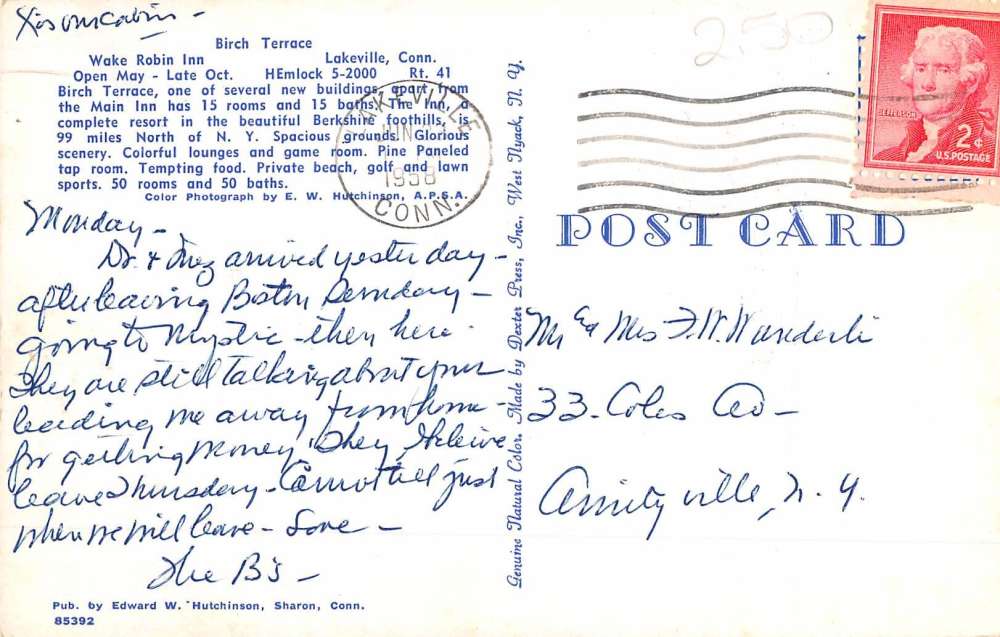 X is our cabin -
2.50
Birch Terrace
Wake Robin Inn Lakeville, Conn.
Open May - Late Oct. HEmlock 5-2000 Rt. 41
Birch Terrace, one of several new buildings, apart from
the Main Inn has 15 rooms and 15 baths. The Inn, a
complete resort in the beautiful Berkshire foothills, is
99 miles North of N. Y. Spacious grounds. Glorious
scenery. Colorful lounges and game room. Pine Paneled
tap room. Tempting food. Private beach, golf and lawn
sports. 50 rooms and 50 baths.
Color Photograph by E. W. Hutchinson, A.P.S.A.
LAKEVILLE
JUN
1958
CONN.
JEFFERSON
2¢
U.S. POSTAGE
POST CARD
Monday -
Dr. & Inez arrived yesterday -
after leaving Boston -
going to Mystic - then here.
They are still talking about your
leading me away from home -
for getting money. They, I believe
leave Thursday - Cannot tell just
when we will leave - Love -
The B's -
Genuine Natural Color. Made by Dexter Press, Inc., West Nyack, N. Y.
Mr & Mrs F. W. Wunderli
33 - Coles Av -
Amityville, N. Y.
Pub. by Edward W. Hutchinson, Sharon, Conn.
85392